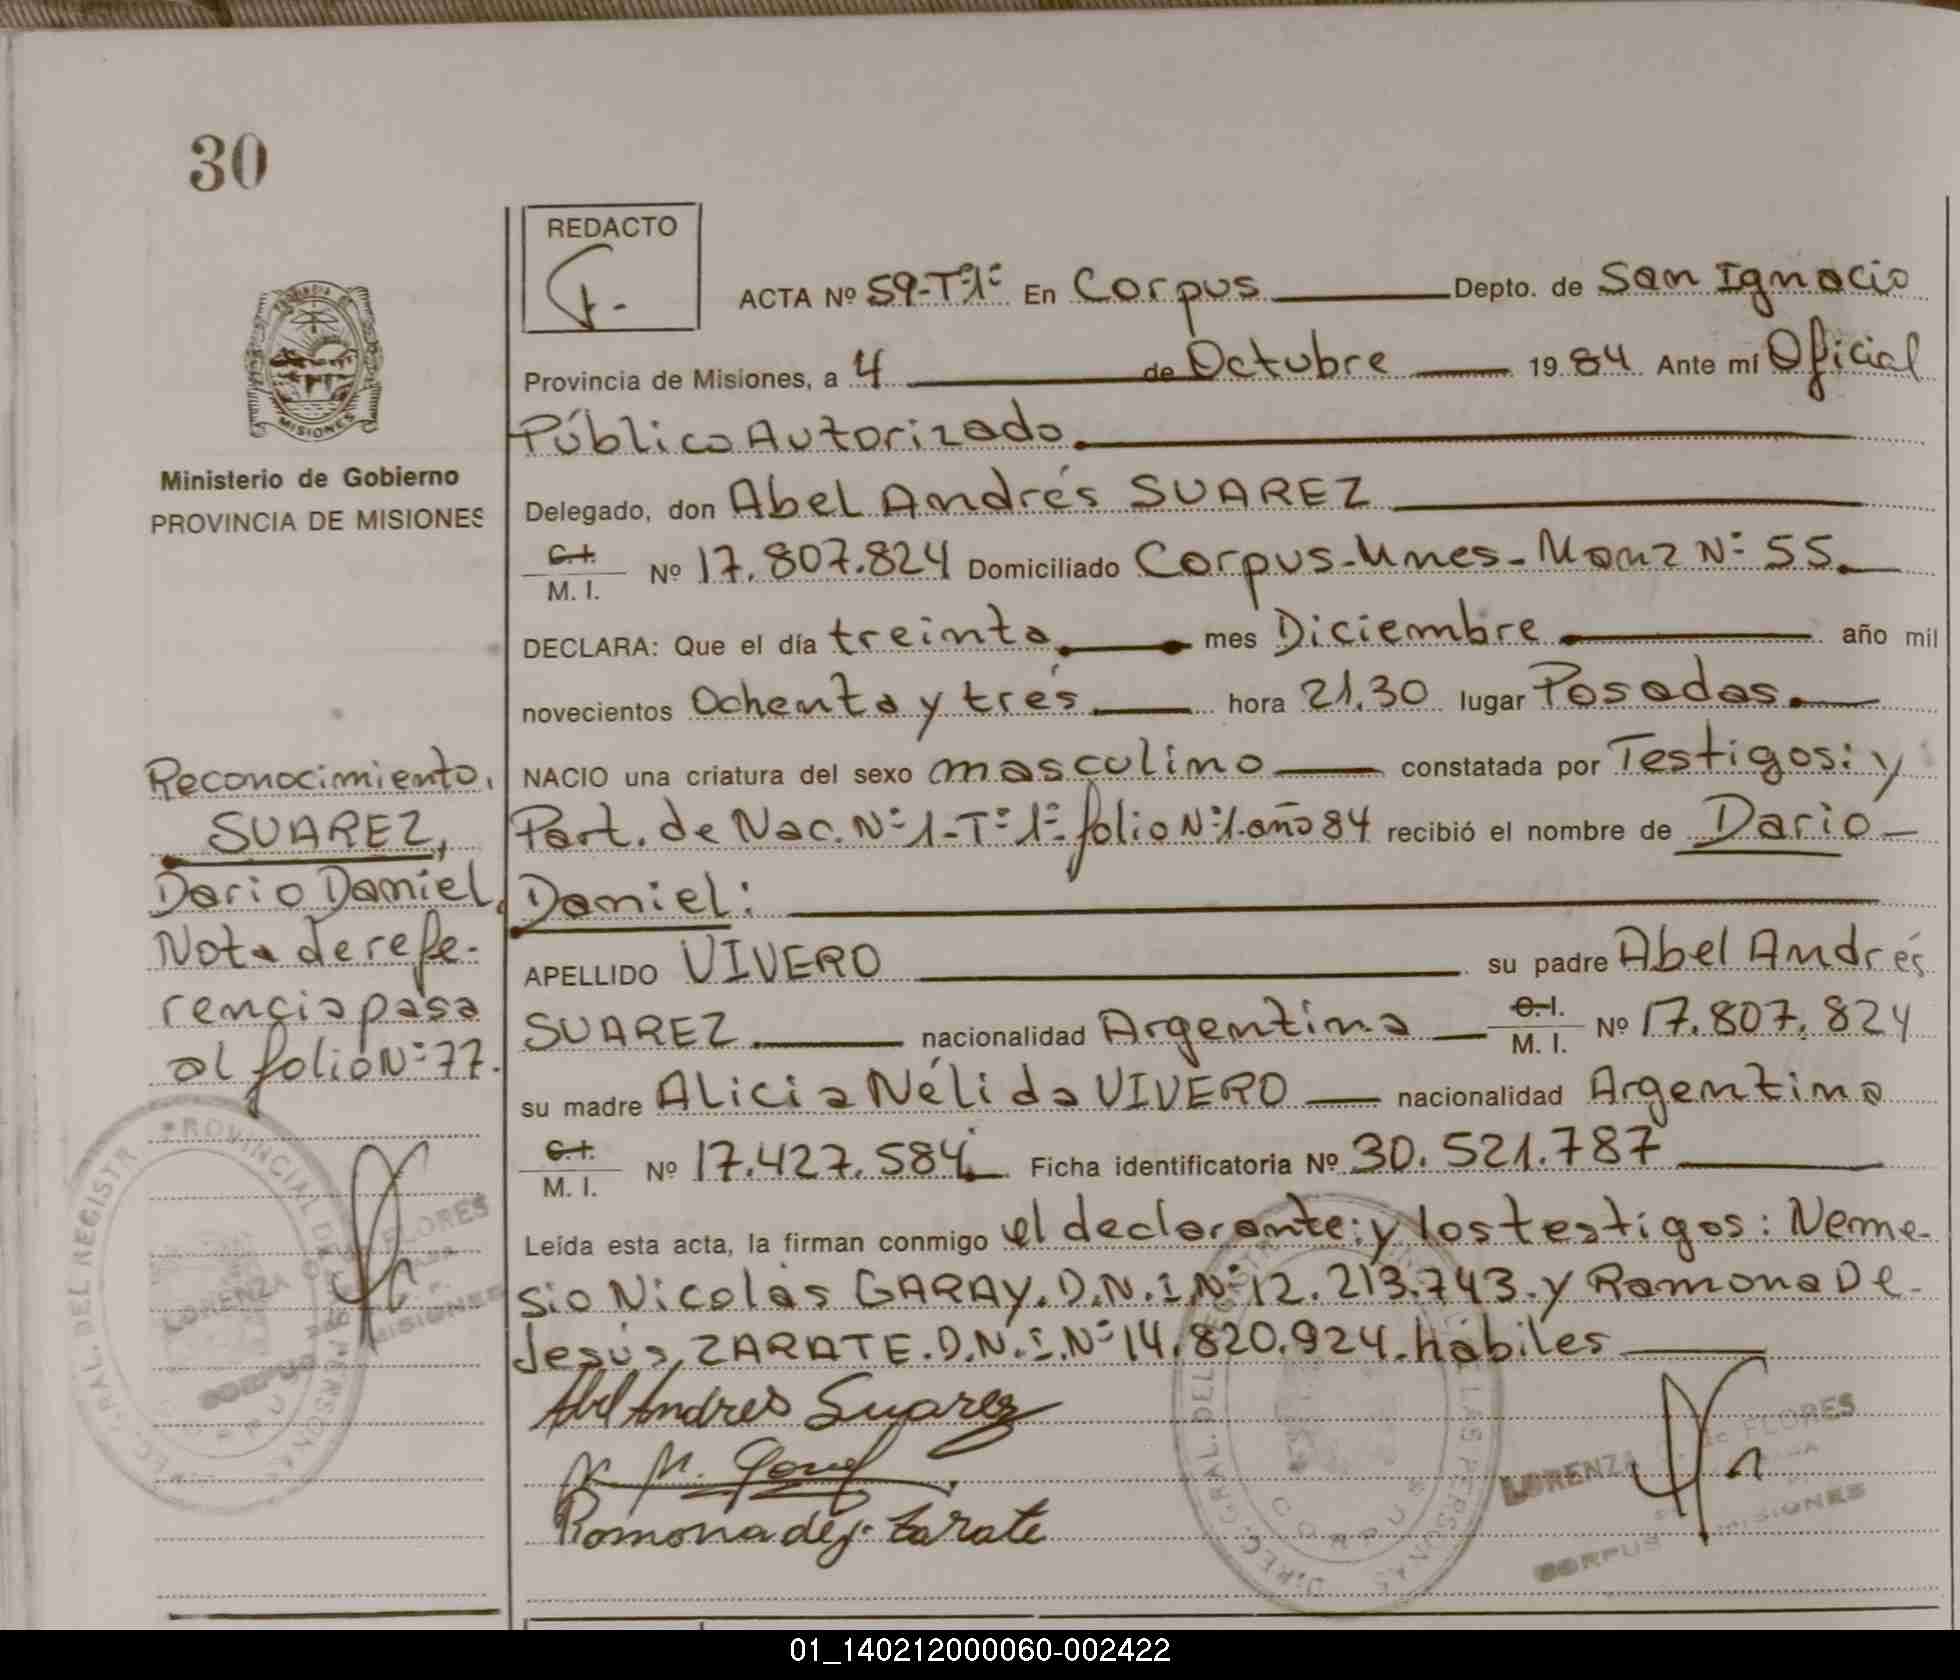 30
REDACTO
ACTA Nº 59-Tº1º En Corpus Depto. de San Ignacio
Provincia de Misiones, a 4 de Octubre 1984 Ante mí Oficial
Público Autorizado.
Ministerio de Gobierno
PROVINCIA DE MISIONES
Delegado, don Abel Andrés SUAREZ
C.I. M. I. Nº 17.807.824 Domiciliado Corpus-Mnes-Manz Nº 55.
DECLARA: Que el día treinta mes Diciembre año mil
novecientos Ochenta y tres hora 21.30 lugar Posadas.
NACIO una criatura del sexo masculino constatada por Testigos: y
Part. de Nac. Nº 1-Tº 1º folio Nº 1. año 84 recibió el nombre de Dario
Daniel:
APELLIDO VIVERO su padre Abel Andrés
SUAREZ nacionalidad Argentina C.I. M. I. Nº 17.807.824
su madre Alicia Nélida VIVERO nacionalidad Argentina
C.I. M. I. Nº 17.427.584 Ficha identificatoria Nº 30.521.787
Leída esta acta, la firman conmigo el declarante: y los testigos: Neme-
sio Nicolás GARAY. D.N.I. Nº 12.213.743. y Ramona De
Jesús, ZARATE. D.N.I. Nº 14.820.924. hábiles
Abel Andres Suarez
Ramona de j. Zarate
Reconocimiento.
SUAREZ,
Dario Daniel.
Nota de refe-
rencia pasa
al folio Nº 77.
DIREC. GRAL. DEL REGISTR PROVINCIAL DE LAS PERSONAS
CORPUS
LORENZA FLORES
CORPUS MISIONES
DIREC. GRAL. DEL LAS PERSONAS
LORENZA FLORES
CORPUS MISIONES
MISIONES
01_140212000060-002422